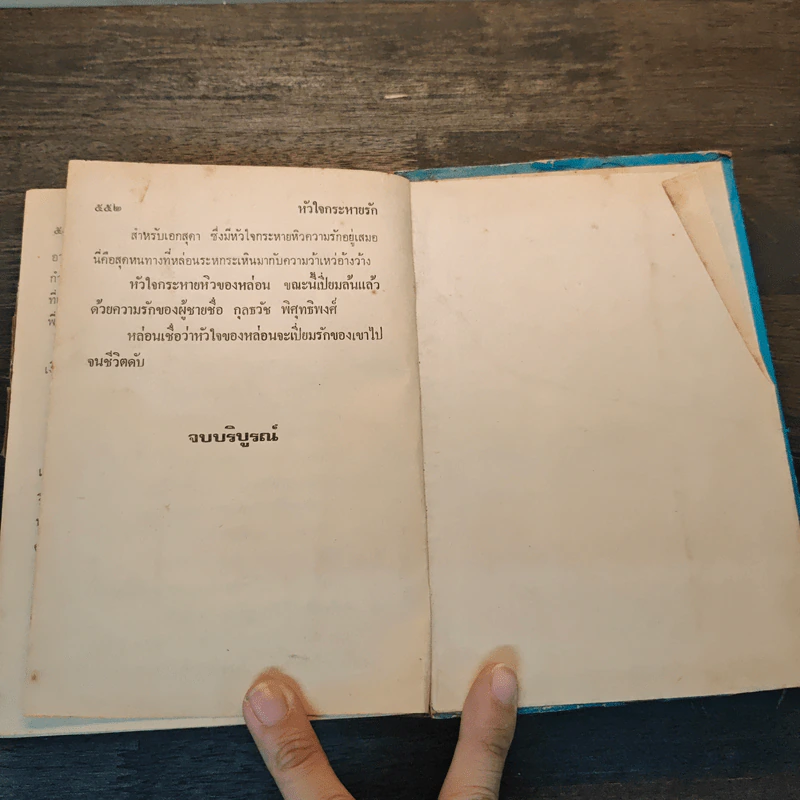 ๕๕๒ หัวใจกระหายรัก
สำหรับเอกสุดา ซึ่งมีหัวใจกระหายหิวความรักอยู่เสมอ
นี่คือสุดหนทางที่หล่อนระหกระเหินมากับความว้าเหว่อ้างว้าง
หัวใจกระหายหิวของหล่อน ขณะนี้เปี่ยมล้นแล้ว
ด้วยความรักของผู้ชายชื่อ กุลธวัช พิศุทธิพงศ์
หล่อนเชื่อว่าหัวใจของหล่อนจะเปี่ยมรักของเขาไป
จนชีวิตดับ
จบบริบูรณ์